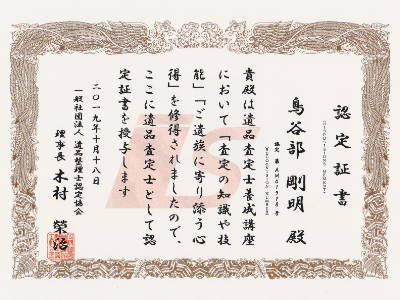 認定証書
鳥谷部 剛明 殿
貴殿は遺品査定士養成講座
において「査定の知識や技
能」「ご遺族に寄り添う心
得」を修得されましたので、
ここに遺品査定士として認
定証書を授与します
二〇一九年十月十八日
一般社団法人 遺品整理士認定協会
理事長 木村 榮治